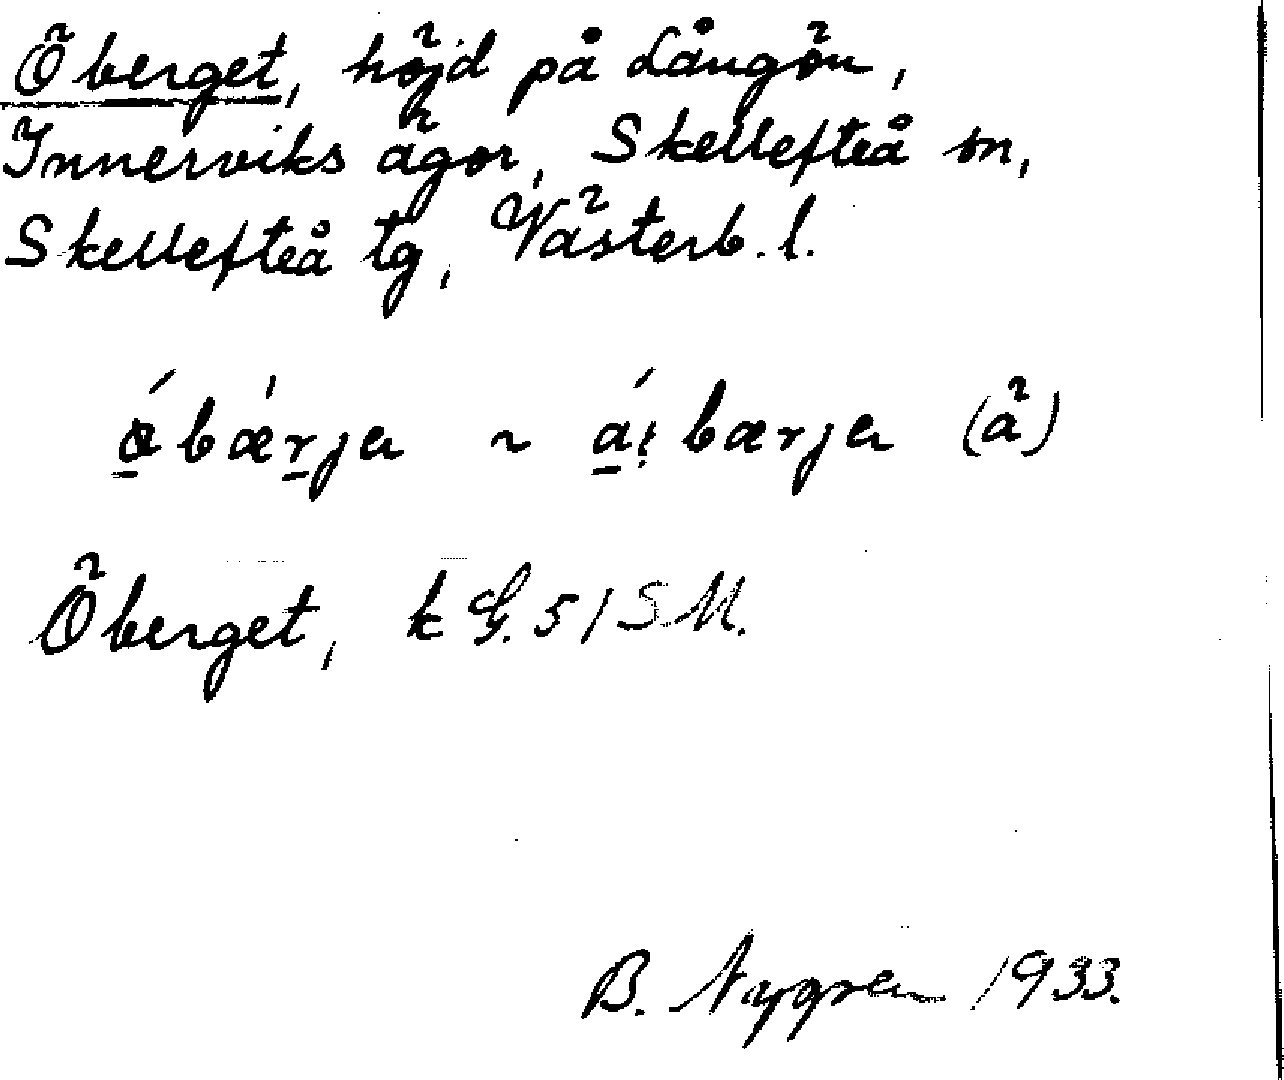 Öberget, höjd på Långön,
Innerviks ägor, Skellefteå sn,
Skellefteå tg, Västerb. l.
bærjer ~ bærjer (å)
Öberget, k G. 51 SM.
B. Nygren 1933.